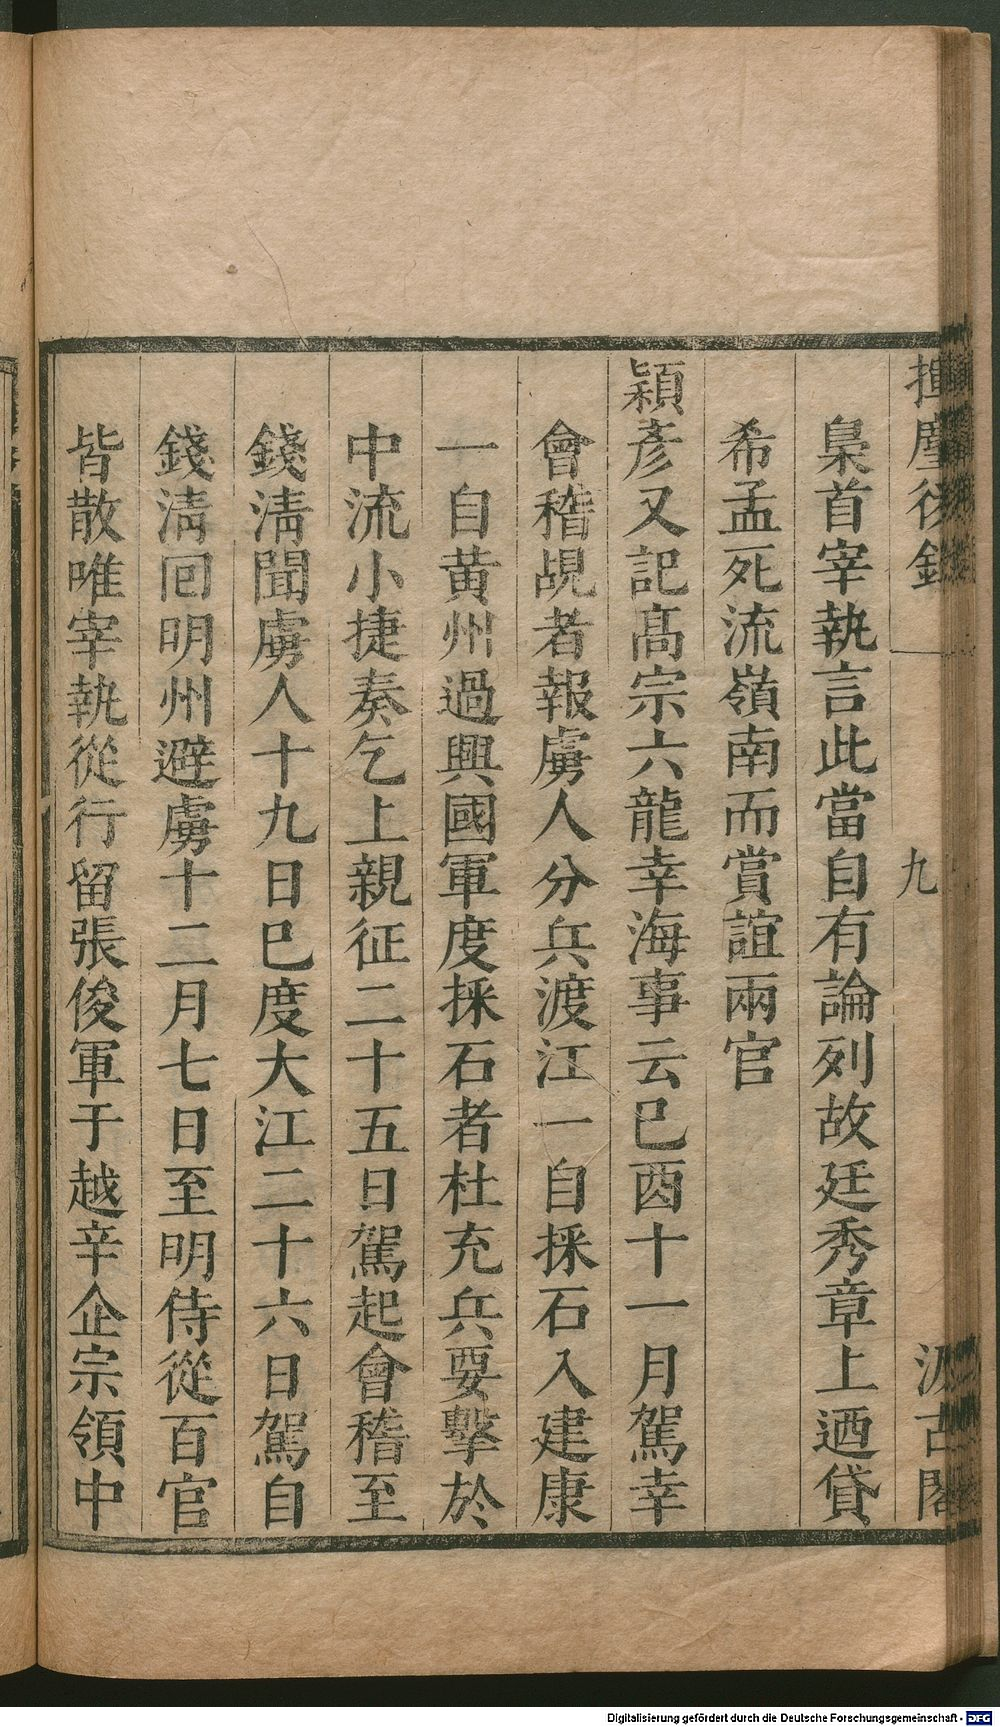 揮麈後錄
九
汲古閣
梟首宰執言此當自有論列故廷秀章上迺貸
希孟死流嶺南而賞誼兩官
穎彥又記髙宗六龍幸海事云巳酉十一月駕幸
會稽覘者報虜人分兵渡江一自採石入建康
一自黄州過興國軍度採石者杜充兵要擊於
中流小捷奏乞上親征二十五日駕起會稽至
錢淸聞虜人十九日巳度大江二十六日駕自
錢淸囘明州避虜十二月七日至明侍從百官
皆散唯宰執從行留張俊軍于越辛企宗領中
Digitalisierung gefördert durch die Deutsche Forschungsgemeinschaft - DFG